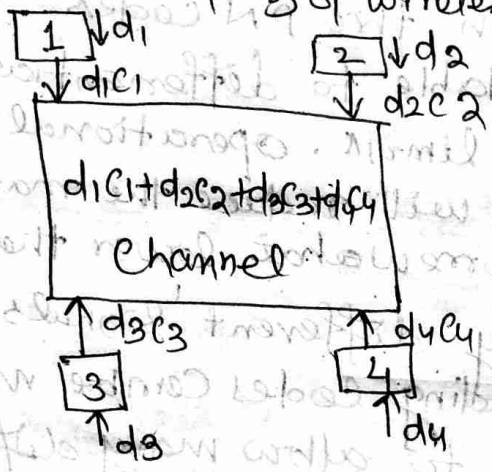 1 ↓d1
2 ↓d2
d1C1
d2C2
d1C1+d2C2+d3C3+d4C4
Channel
d3C3
d4C4
3
4
d3
d4